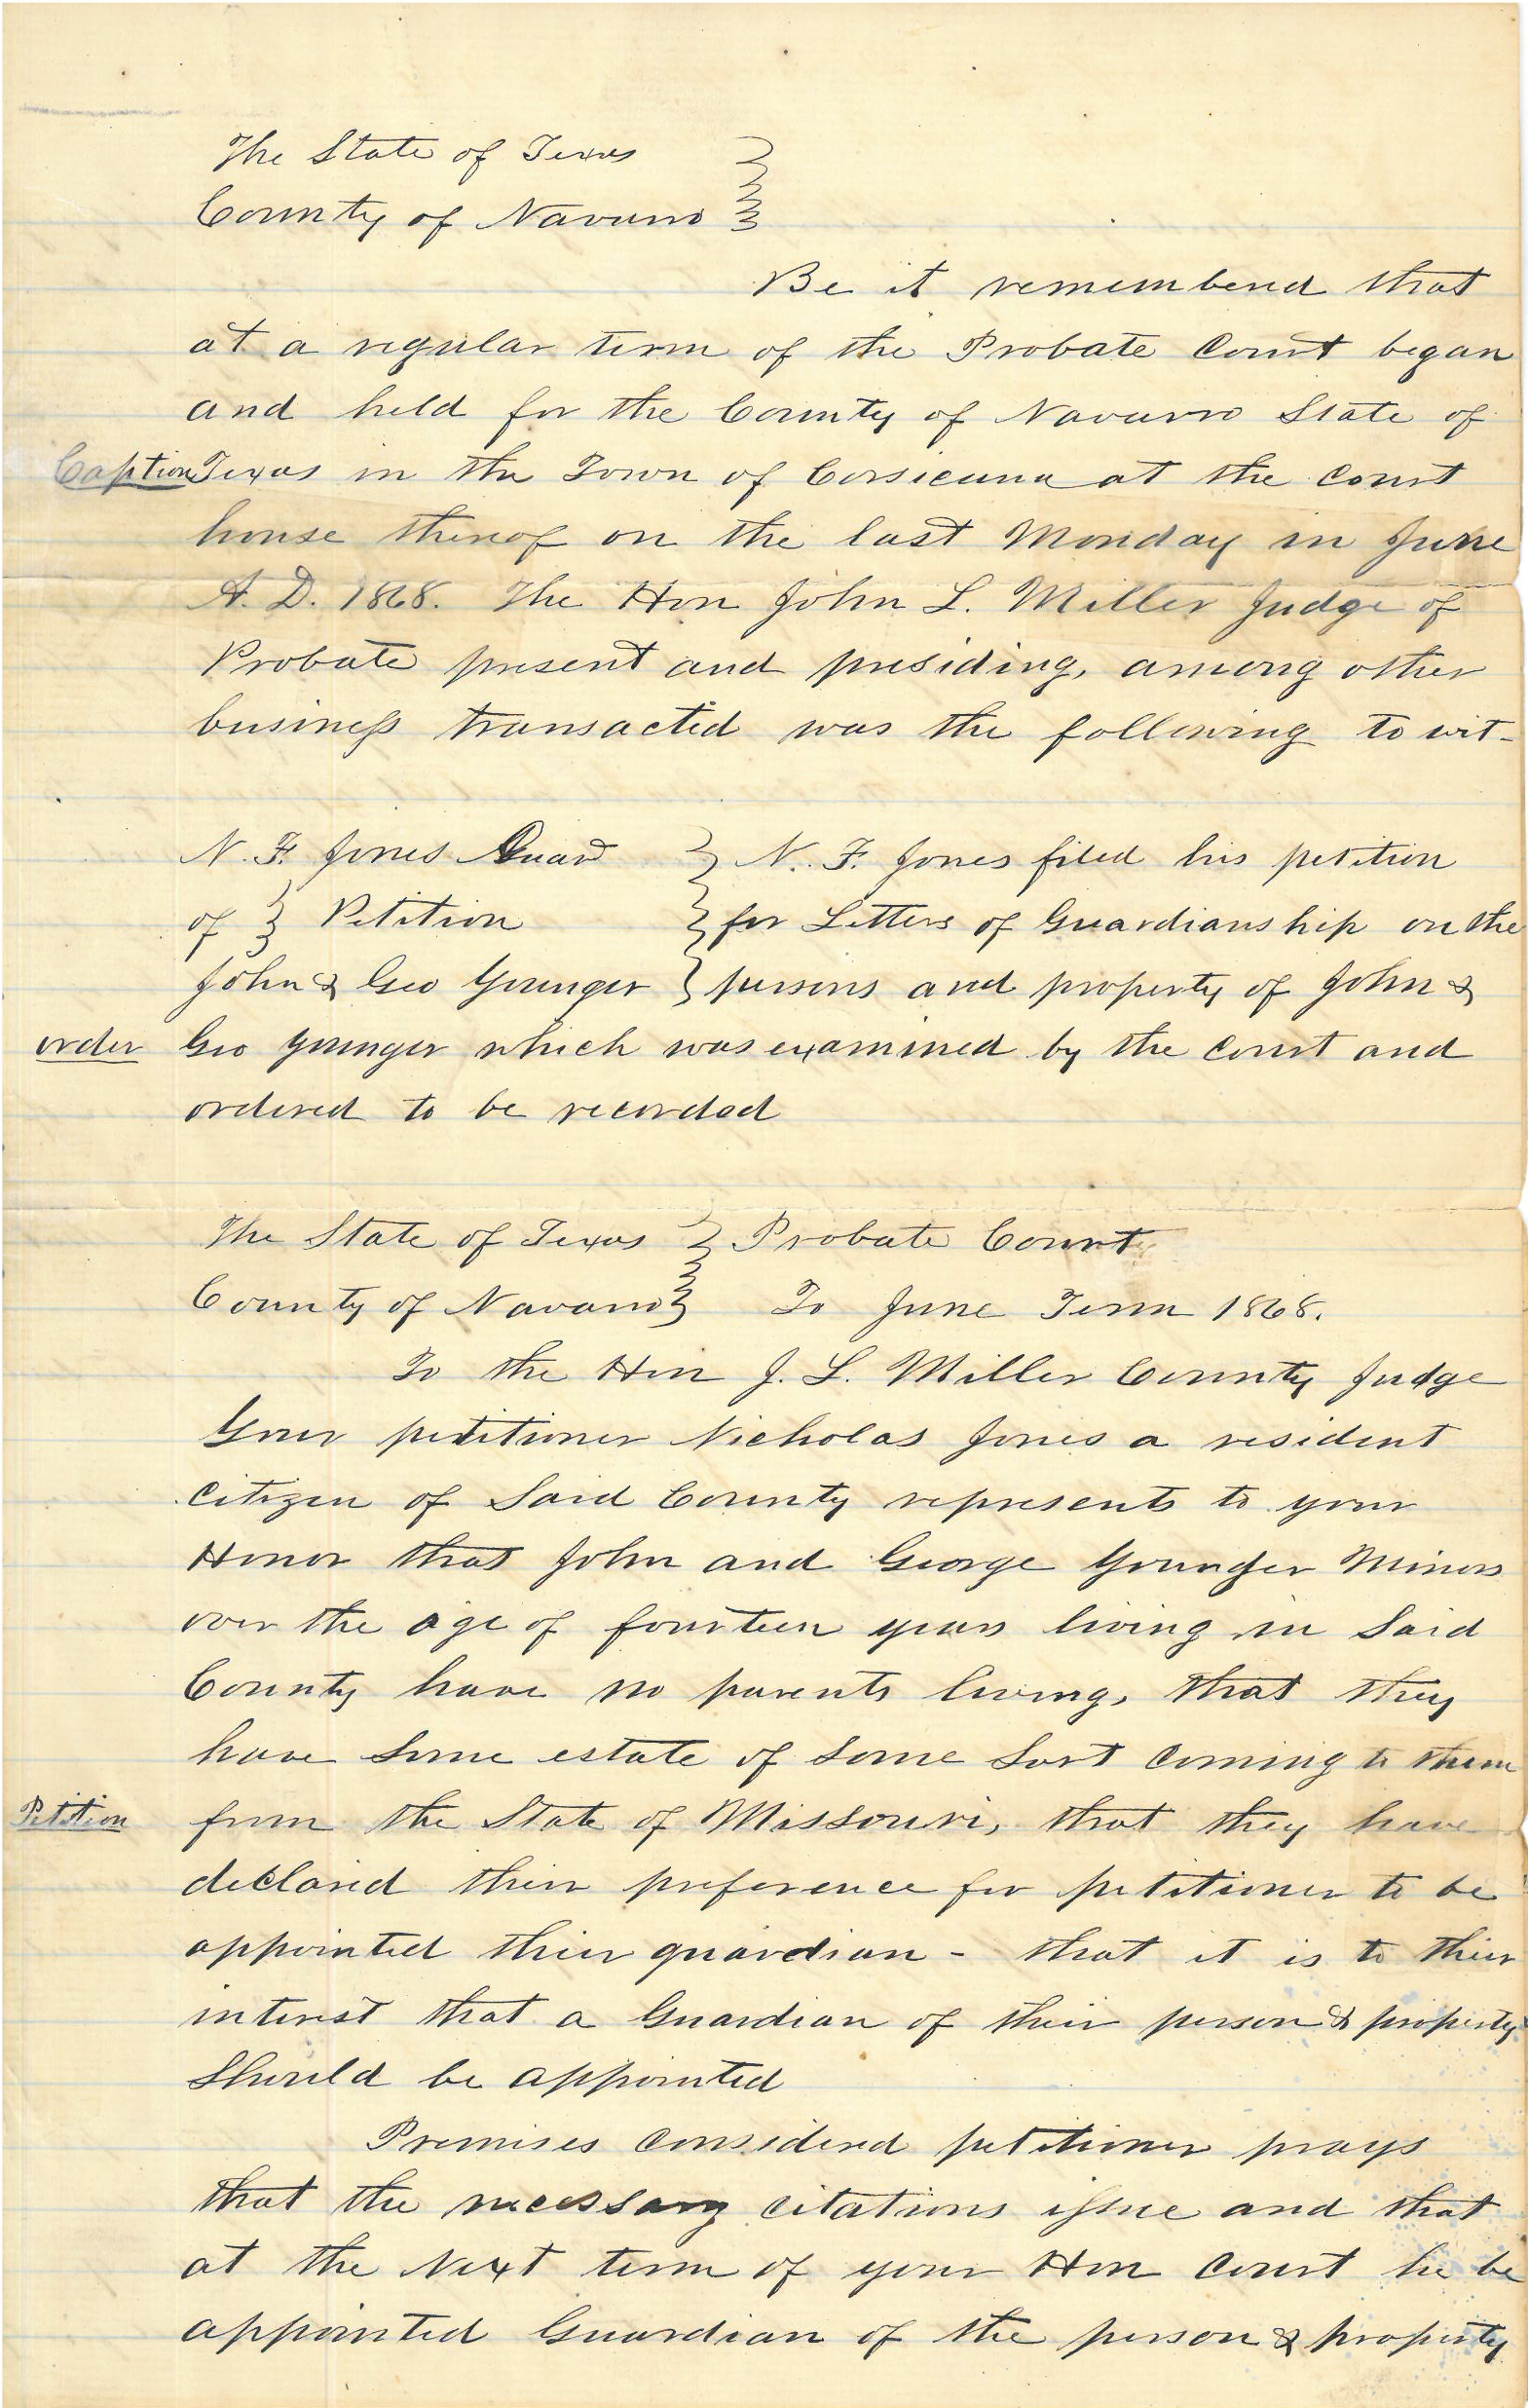 The State of Texas }
County of Navarro }
Be it remembered that
at a regular term of the Probate Court began
and held for the County of Navarro State of
Caption Texas in the Town of Corsicana at the Court
house thereof on the last Monday in June
A. D. 1868. The Hon John L. Miller Judge of
Probate present and presiding, among other
business transacted was the following to wit-
N. F. Jones Guard } N. F. Jones filed his petition
of } Petition } for Letters of Guardianship on the
John & Geo Younger } persons and property of John &
order Geo Younger which was examined by the Court and
ordered to be recorded
The State of Texas } Probate Court
County of Navarro } To June Term 1868.
To the Hon J. L. Miller County Judge
Your petitioner Nicholas Jones a resident
Citizen of Said County represents to your
Honor that John and George Younger Minors
over the age of fourteen years living in Said
County have no parents living, that they
have Some estate of Some Sort Coming to them
Petition from the State of Missouri, that they have
declared their preference for petitioner to be
appointed their guardian - that it is to their
interest that a Guardian of their person & property
Should be appointed
Premises Considered petitioner prays
that the necessary Citations issue and that
at the Next term of your Hon Court he be
appointed Guardian of the person & property